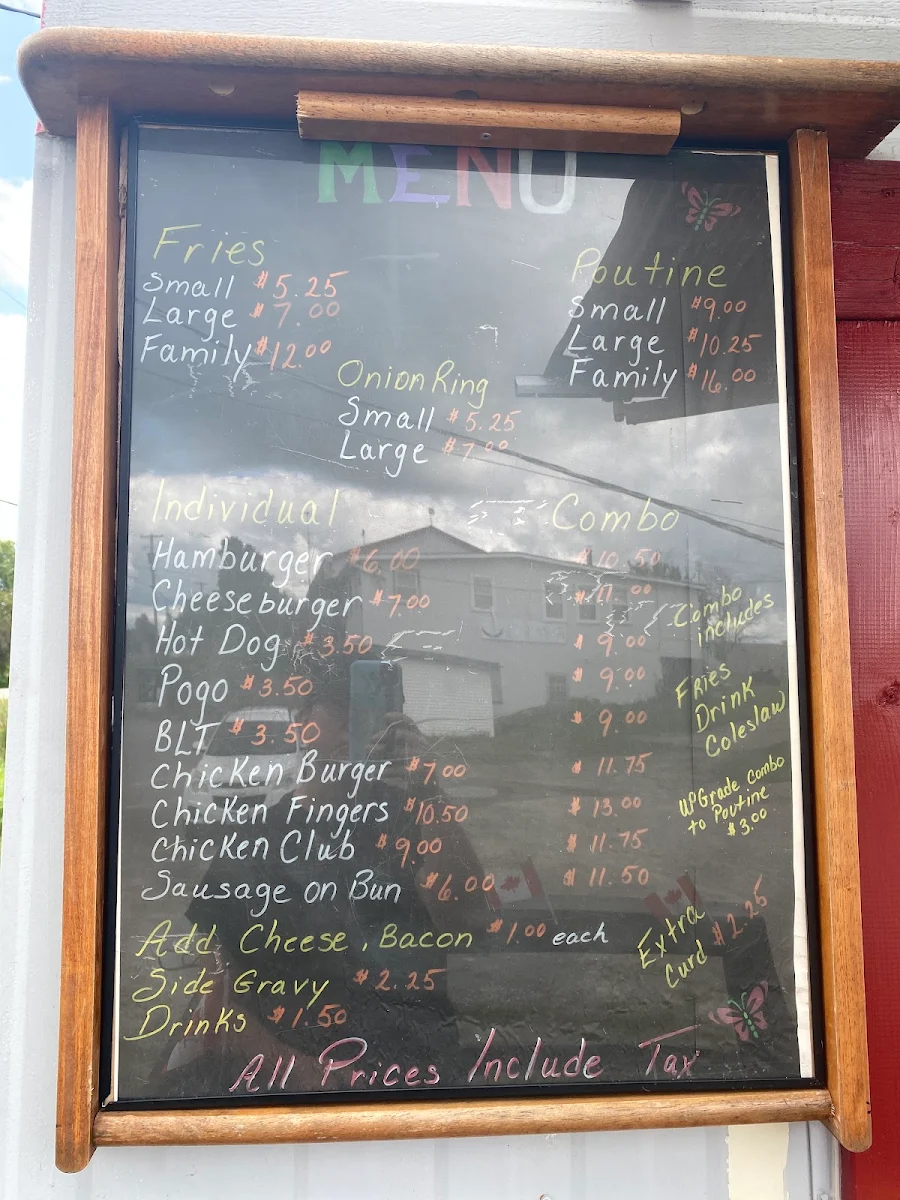 MENU
Fries
Small $5.25
Large $7.00
Family $12.00
Poutine
Small $9.00
Large $10.25
Family $16.00
Onion Ring
Small $5.25
Large $7.00
Individual Combo
Hamburger $6.00 $10.50
Cheeseburger $7.00 $11.00
Hot Dog $3.50 $9.00
Pogo $3.50 $9.00
BLT $3.50 $9.00
Chicken Burger $7.00 $11.75
Chicken Fingers $10.50 $13.00
Chicken Club $9.00 $11.75
Sausage on Bun $6.00 $11.50
Combo
includes
Fries
Drink
Coleslaw
UPGrade Combo
to Poutine
$3.00
Add Cheese, Bacon $1.00 each
Side Gravy $2.25
Drinks $1.50
Extra $2.25
Curd
All Prices Include Tax